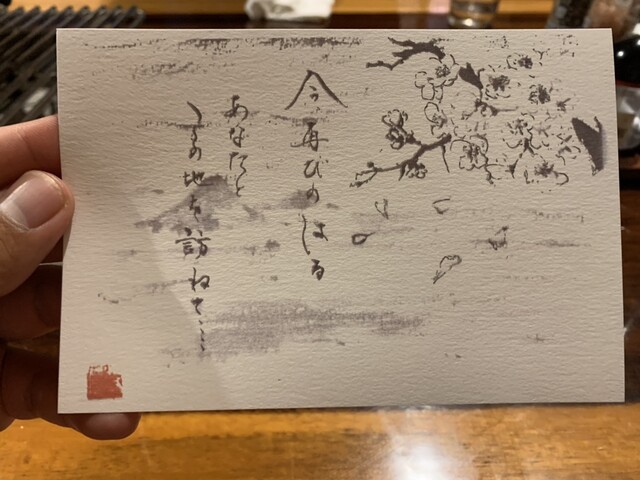 今、再びのはる
あなたと
この地を訪ねて……